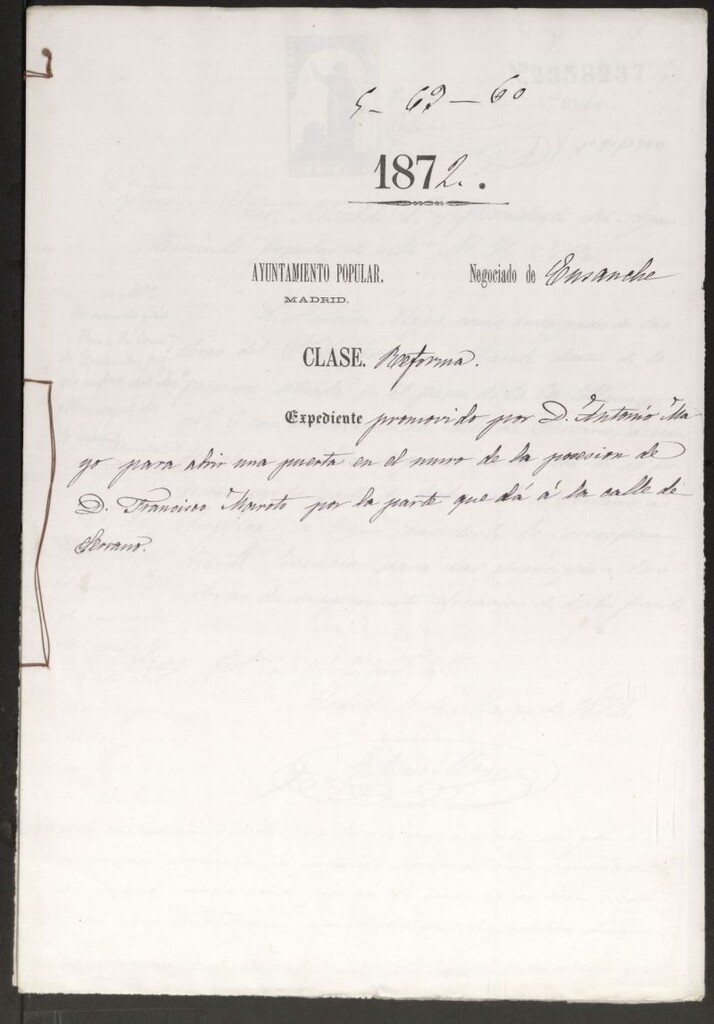 5-69-60
1872.
AYUNTAMIENTO POPULAR. Negociado de Ensanche
MADRID.
CLASE. Reforma.
Expediente promovido por D. Antonio Ma-
yo para abrir una puerta en el muro de la posesion de
D. Francisco Maroto por la parte que dá á la calle de
Serrano.